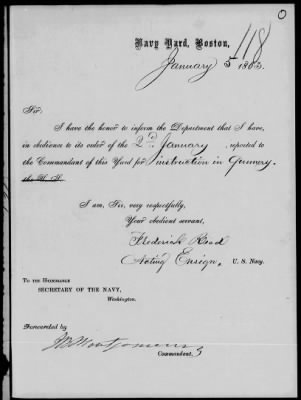 0
118
Navy Yard, Boston,
January 5 1863.
Sir:
I have the honor to inform the Department that I have,
in obedience to its order of the 2nd January, reported to
the Commandant of this Yard for instruction in Gunnery.
the U. S.
I am, Sir, very respectfully,
Your obedient servant,
Frederick
Acting Ensign, U. S. Navy.
To the Honorable
SECRETARY OF THE NAVY,
Washington.
Forwarded by
JB Montgomery
Commandant.